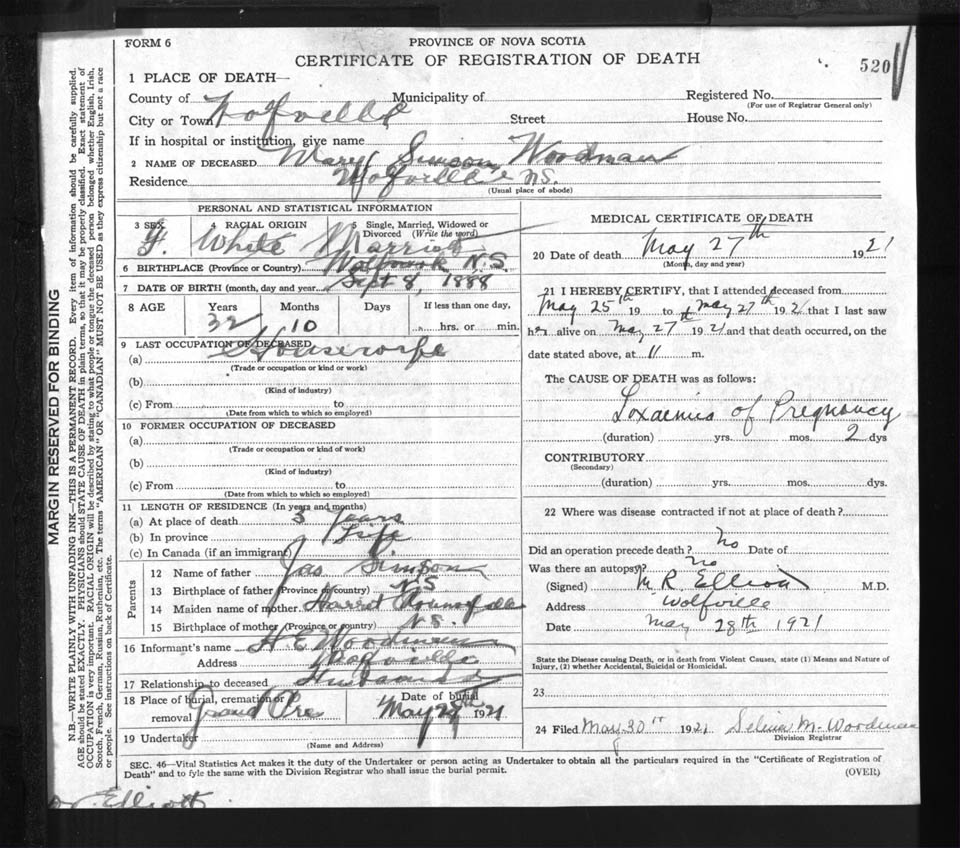 FORM 6
PROVINCE OF NOVA SCOTIA
CERTIFICATE OF REGISTRATION OF DEATH
520
1 PLACE OF DEATH—
County of Municipality of Registered No.
(For use of Registrar General only)
City or Town Wolfville Street House No.
If in hospital or institution, give name
2 NAME OF DECEASED Mary Simson Woodman
Residence Wolfville NS.
(Usual place of abode)
PERSONAL AND STATISTICAL INFORMATION
3 SEX 4 RACIAL ORIGIN 5 Single, Married, Widowed or
Divorced (Write the word)
F. White Married
6 BIRTHPLACE (Province or Country) N.S.
7 DATE OF BIRTH (month, day and year) Sept 8, 1888
8 AGE Years Months Days If less than one day,
32 10 hrs. or min.
9 LAST OCCUPATION OF DECEASED
(a) Housewife
(Trade or occupation or kind or work)
(b)
(Kind of industry)
(c) From to
(Date from which to which so employed)
10 FORMER OCCUPATION OF DECEASED
(a)
(Trade or occupation or kind of work)
(b)
(Kind of industry)
(c) From to
(Date from which to which so employed)
11 LENGTH OF RESIDENCE (In years and months)
(a) At place of death 3 years
(b) In province Life
(c) In Canada (if an immigrant)
Parents
12 Name of father Jas Simpson
13 Birthplace of father (Province or country) NS
14 Maiden name of mother Harriet
15 Birthplace of mother (Province or country) N.S.
16 Informant's name H E Woodman
Address Wolfville
17 Relationship to deceased Husband
18 Place of burial, cremation or removal Grand Pre Date of burial May 29th 1921
19 Undertaker
(Name and Address)
MEDICAL CERTIFICATE OF DEATH
20 Date of death May 27th 1921
(Month, day and year)
21 I HEREBY CERTIFY, that I attended deceased from
May 25th 19 to May 27th 1921 that I last saw
her alive on May 27 1921 and that death occurred, on the
date stated above, at 11 m.
The CAUSE OF DEATH was as follows:
Toxaemia of Pregnancy
(duration) yrs. mos. 2 dys
CONTRIBUTORY
(Secondary)
(duration) yrs. mos. dys.
22 Where was disease contracted if not at place of death?
Did an operation precede death? No Date of
Was there an autopsy? No
(Signed) M R Elliott M.D.
Address Wolfville
Date May 28th 1921
State the Disease causing Death, or in death from Violent Causes, state (1) Means and Nature of
Injury, (2) whether Accidental, Suicidal or Homicidal.
23
24 Filed May 30th 1921 Selina M. Woodman
Division Registrar
SEC. 46—Vital Statistics Act makes it the duty of the Undertaker or person acting as Undertaker to obtain all the particulars required in the "Certificate of Registration of
Death" and to fyle the same with the Division Registrar who shall issue the burial permit. (OVER)
Elliott
MARGIN RESERVED FOR BINDING
N.B.—WRITE PLAINLY WITH UNFADING INK—THIS IS A PERMANENT RECORD. Every item of information should be carefully supplied.
AGE should be stated EXACTLY. PHYSICIANS should STATE CAUSE OF DEATH in plain terms, so that it may be properly classified. Exact statement of
OCCUPATION is very important. RACIAL ORIGIN will be described by stating to what people or tongue the deceased person belonged whether English, Irish,
Scotch, French, German, Russian, Ruthenian, etc. The terms "AMERICAN" OR "CANADIAN" MUST NOT BE USED as they express citizenship but not a race
or people. See instructions on back of Certificate.